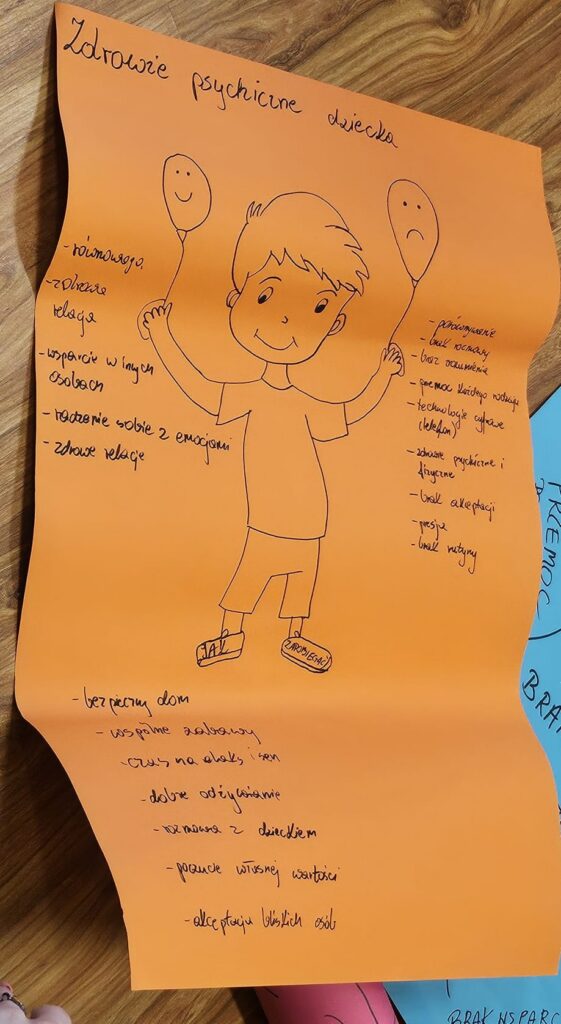 Zdrowie psychiczne dziecka
- równowaga
- zdrowe
relacje
- wsparcie w innych
osobach
- radzenie sobie z emocjami
- zdrowe relacje
- porównywanie
- brak rozmowy
- brak
- przemoc każdego rodzaju
- technologie cyfrowe
(telefon)
- zdrowie psychiczne i
fizyczne
- brak akceptacji
- presja
- brak rutyny
JAK
ZAPOBIEGAĆ
- bezpieczny dom
- wspólne zabawy
- czas na relaks i sen
- dobre odżywianie
- rozmowa z dzieckiem
- poczucie własnej wartości
- akceptacja bliskich osób
PRZEMOC
BRA
BRAK WSPARC